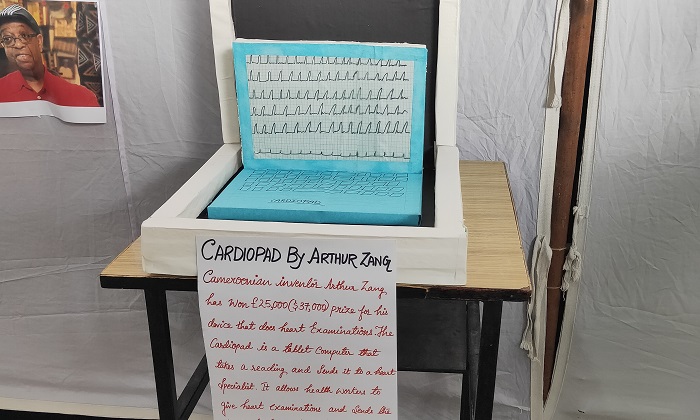 CARDIOPAD
CARDIOPAD BY ARTHUR ZANG
Cameroonian inventor Arthur Zang
has won £25,000($37,000) prize for his
device that does heart Examinations. The
Cardiopad is a tablet computer that
takes a reading and sends it to a heart
Specialist. It allows health workers to
give heart examinations and sends the